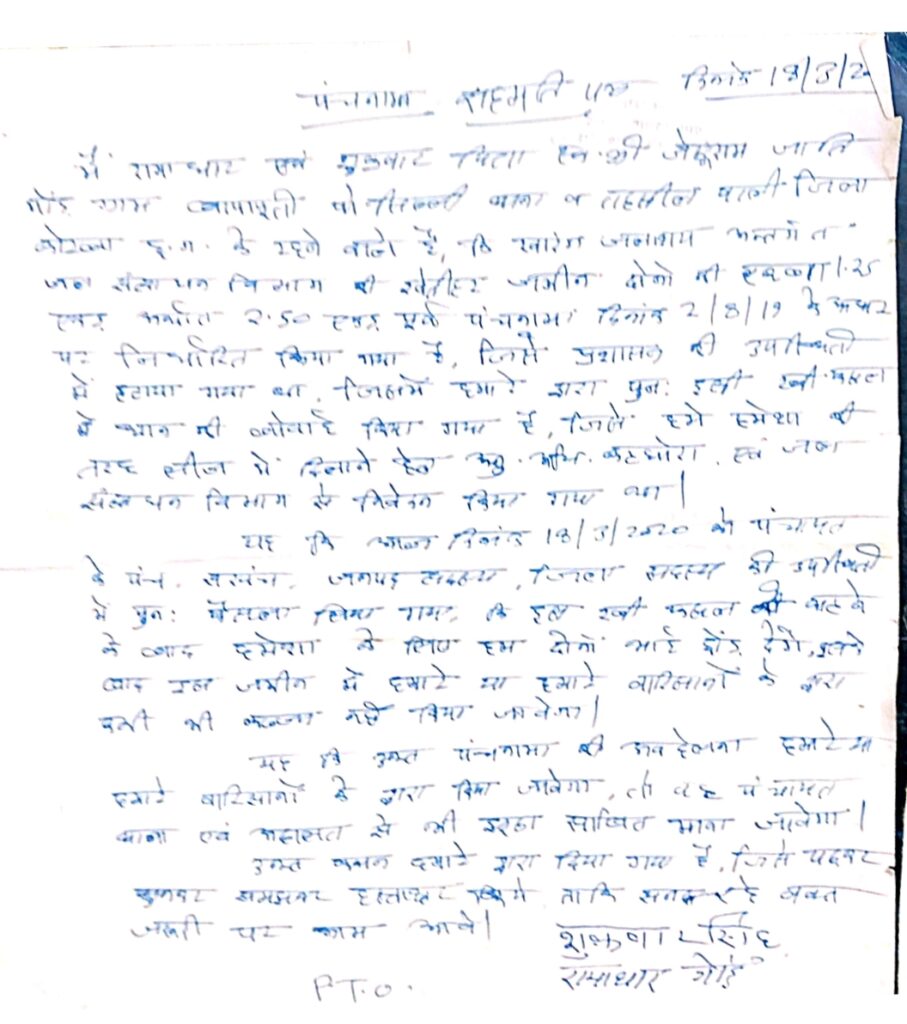 पंचनामा सहमति पत्र दिनांक 18/3/2
मैं रामाधार एवं शुक्रवार पिता स्व. श्री जेठूराम जाति
गोंड़ ग्राम पो थाना व तहसील पाली जिला
कोरबा छ.ग. के रहने वाले है, कि खारंग जलाशय अन्तर्गत
जल संसाधन विभाग की जमीन दोनो की रकब्बा 1.25
एकड़ अर्थात 2.50 एकड़ पंचनामा दिनांक 2/8/19 के आधार
पर निर्धारित किया गया है, जिसे प्रशासन की उपस्थिती
में हटाया गया था, जिसमें हमारे द्वारा पुनः इसी रबी फसल
में धान की बोवाई किया गया है, जिसे हमे हमेशा की
तरह लीज में दिलाने हेतु अनु. अधि. कटघोरा, एवं जल
संसाधन विभाग से निवेदन किया गया था।
यह कि आज दिनांक 18/3/2020 को पंचायत
के पंच, सरपंच, जनपद सदस्य, जिला सदस्य की उपस्थिती
में पुनः फैसला लिया गया, कि इस रबी फसल को काटने
के बाद हमेशा के लिए हम दोनों भाई छोंड़ देंगे, इसके
बाद इस जमीन में हमारे या हमारे वारिसानों के द्वारा
कभी भी कब्जा नही किया जावेगा।
यह कि उक्त पंचनामा की अवहेलना हमारे या
हमारे वारिसानों के द्वारा किया जावेगा, तो वह पंचायत
थाना एवं अदालत से भी झूठा साबित माना जावेगा।
उक्त कथन हमारे द्वारा दिया गया है, जिसे पढ़कर
सुनकर समझकर हस्ताक्षर किये ताकि सनद रहे वक्त
जरूरी पर काम आवे।
शुक्रवार सिंह
रामाधार गोंड़
P.T.O.